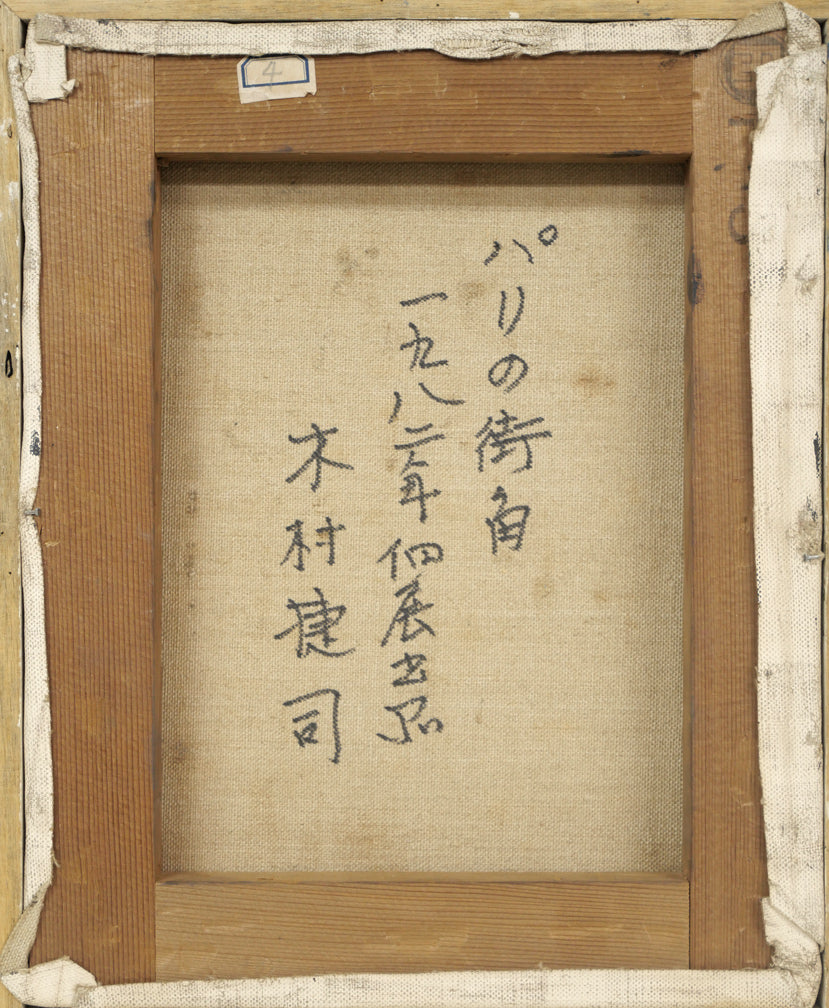 パリの街角
一九八二年個展出品
木村捷司
4